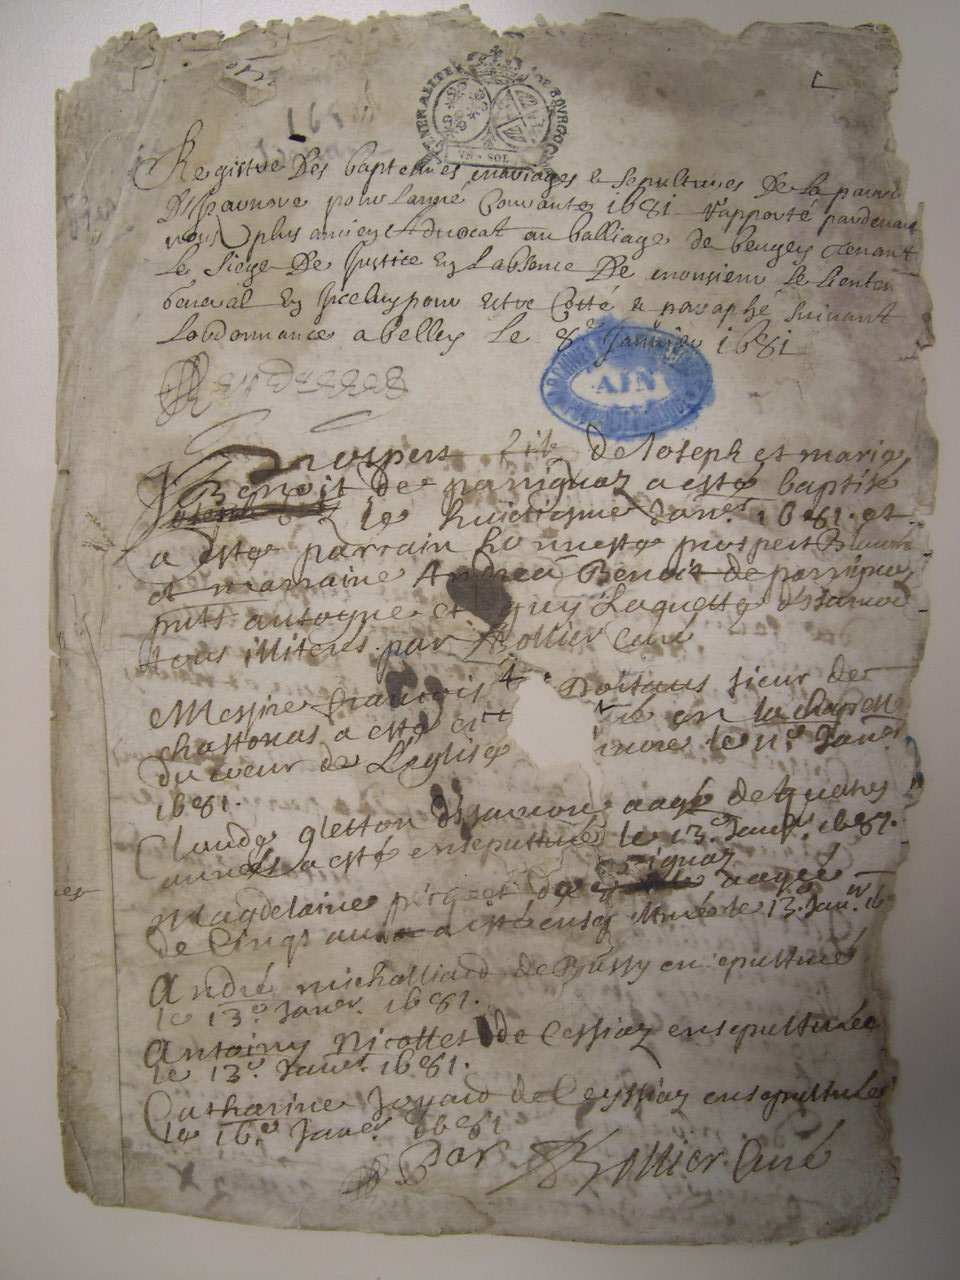 GENERALITE DE BOURGOG
UN SOL
168
Registre Des baptemes mariages & sepultures De la parois
Disernore pour Lannee Courante 1681 Rapporté pardevant
nous plus ancien Advocat au balliage de beugey tenant
Le Siege De Justice En Labsence De monsieur Le Lieuten
General En Iceluy pour Estre Cotté & paraphé suivant
Lordonnance a belley Le 8e Janvier 1681
AIN
Prospert filz de Joseph et marie
Benoit de parrignaz a esté baptisé
le huictiesme Janer 1681. et
a esté parrain honneste prospert
et marraine Andrea Benoit de parrignaz
pntz antoyne et guy Laguette
tous illiteres par Rollier curé
Messire francois sieur de
chastonas a esté en la chapelle
du coeur de L'eglise le 11e Janer
1681.
Claude gletton aagé de quatre
années a esté ensepulturé le 13e Janer. 1681.
Magdelaine de aagée
de Cinqs ans a esté le 13e Janer. 16
André michalliard de Bussy ensepulturé
le 13e Janer. 1681.
Antoiny Nicollet de Cessiaz ensepulturée
le 13e Janer. 1681.
Catharine Joyard de Ceyssiaz ensepulturée
le 16e Janer. 1681
Par Rollier Curé